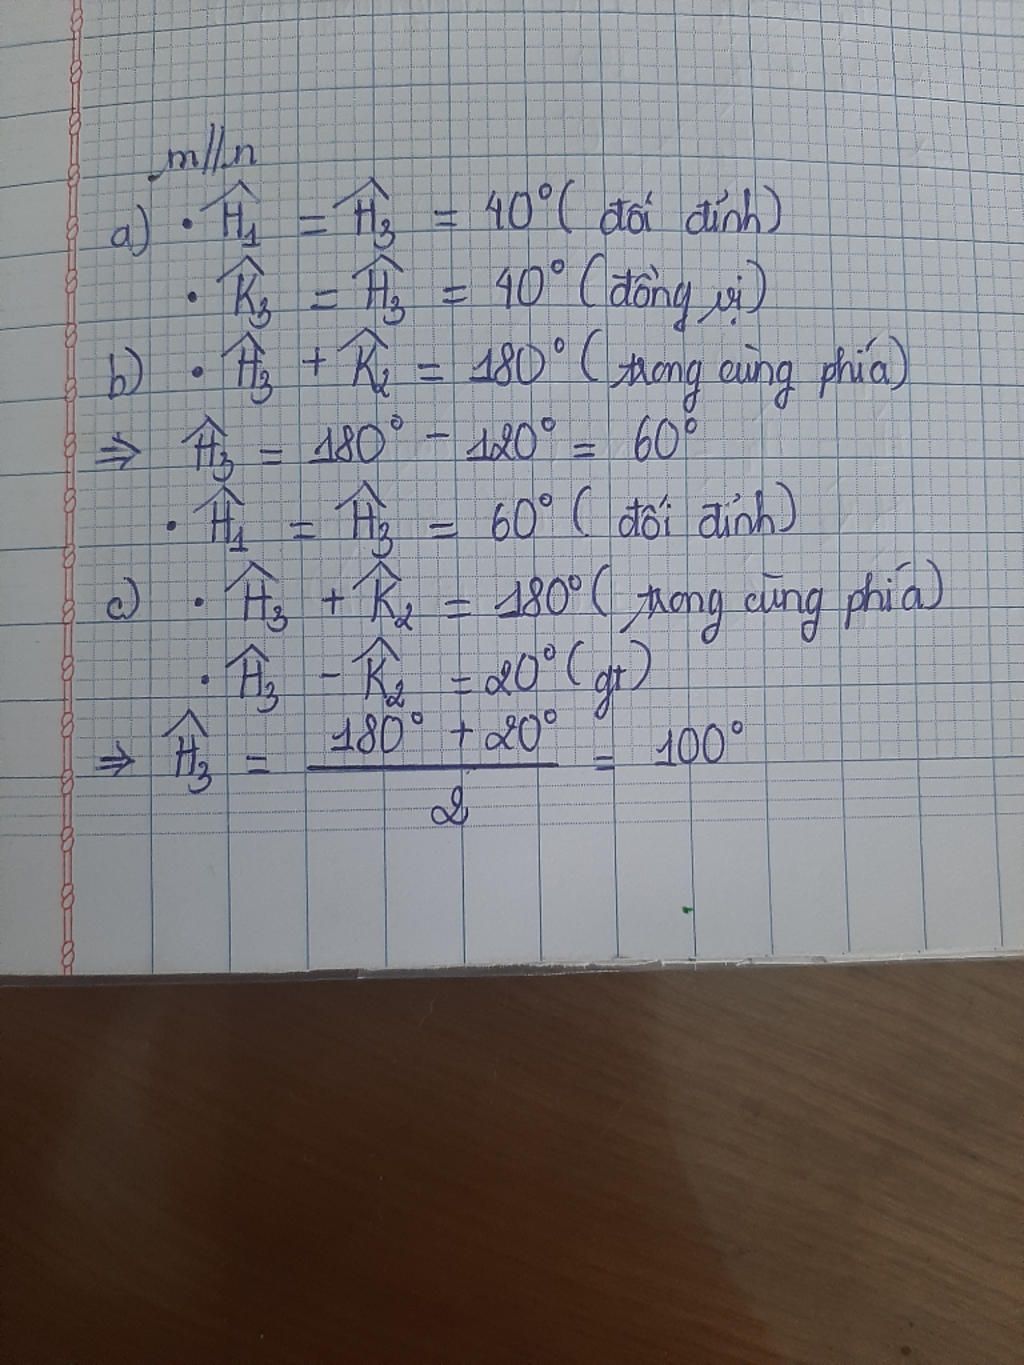 m//n
a) • Ĥ₁ = Ĥ₃ = 40° ( đối đỉnh)
• K̂₃ = Ĥ₃ = 40° (đồng vị)
b) • Ĥ₃ + K̂₂ = 180° ( trong cùng phía)
⇒ Ĥ₃ = 180° - 120° = 60°
• Ĥ₁ = Ĥ₃ = 60° ( đối đỉnh)
c) • Ĥ₃ + K̂₂ = 180° ( trong cùng phía)
• Ĥ₃ - K̂₂ = 20° (gt)
⇒ Ĥ₃ = (180° + 20°)/2 = 100°